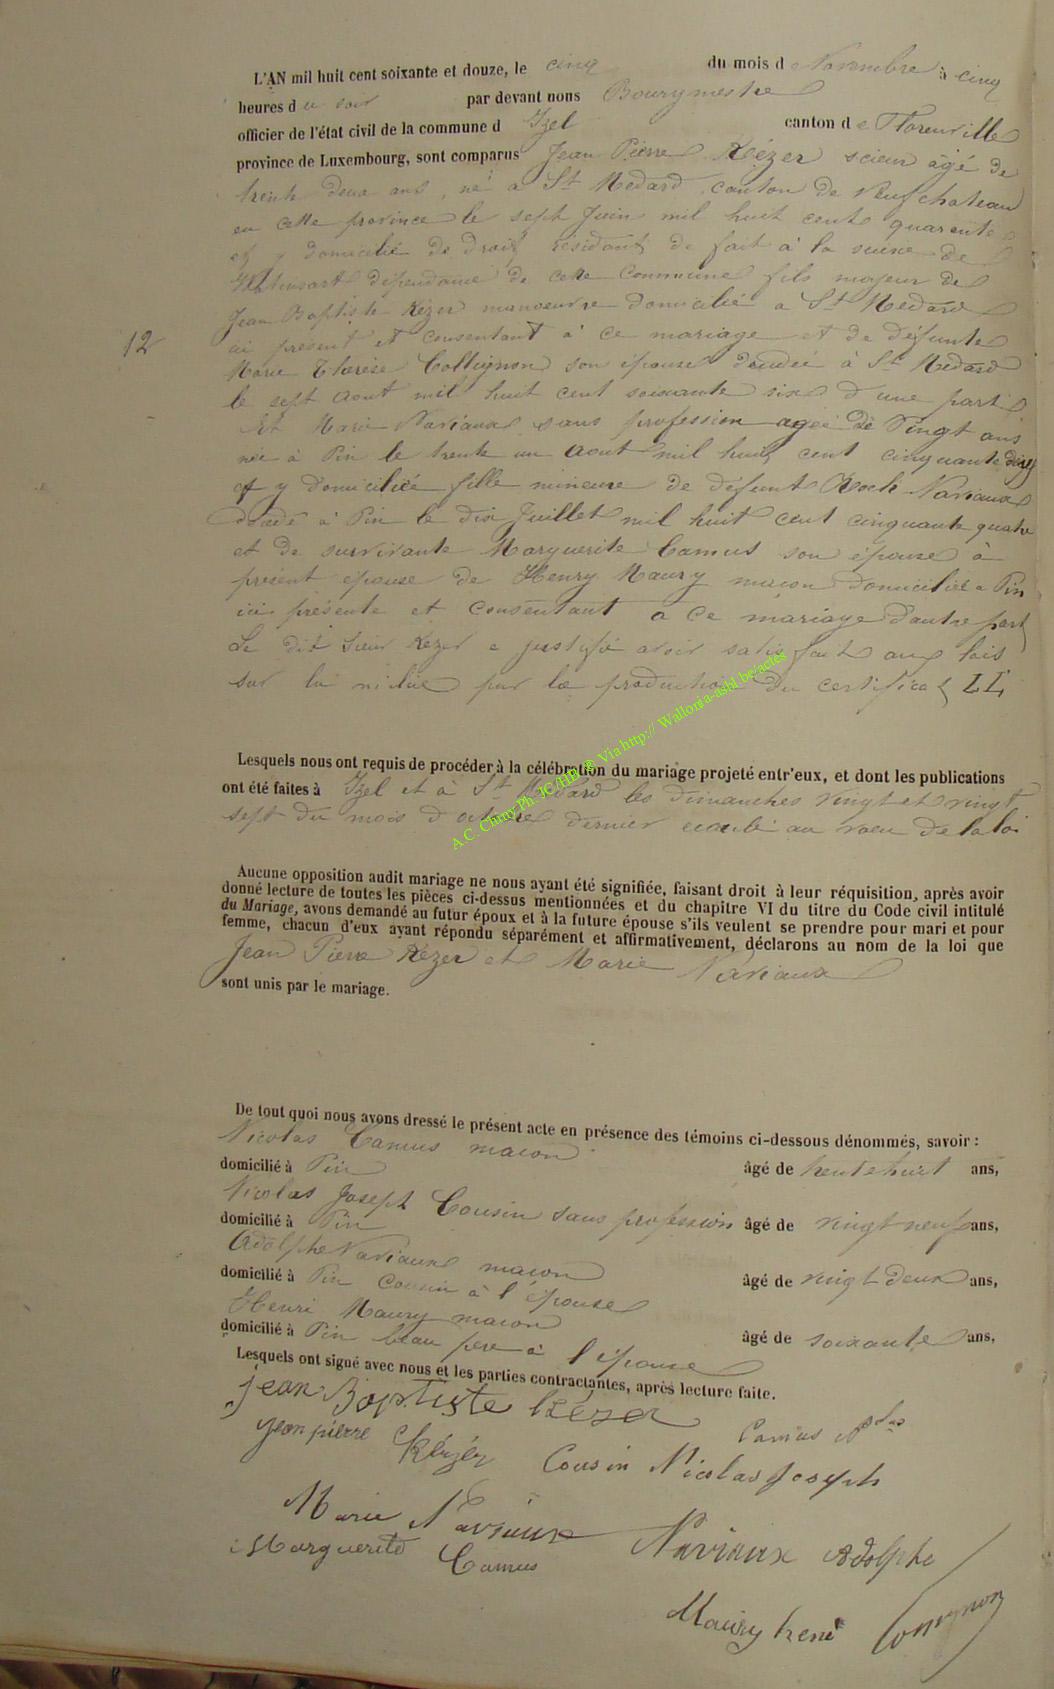 L'AN mil huit cent soixante et douze, le cinq du mois d e Novembre à cinq
heures d u soir par devant nous Bourgmestre
officier de l'état civil de la commune d Izel canton d e Florenville
province de Luxembourg, sont comparus Jean Pierre Kézer scieur âgé de
trente deux ans, né à St Médard, canton de Neufchateau
en cette province le sept Juin mil huit cent quarante
et y domicilié de droit, résidant de fait à la scierie de
dépendance de cette Commune fils majeur de
Jean Baptiste Kézer manoeuvre domicilié à St Médard
ici présent et consentant à ce mariage et de défunte
12
Marie Thérèse Collignon son épouse décédée à St Médard
le sept Aout mil huit cent soixante six d'une part
Et Marie Naviaux sans profession agée de Vingt ans
née à Pin le trente un Aout mil huit cent cinquante deux
et y domiciliée fille mineure de défunt Roch Naviaux
décédé à Pin le dix Juillet mil huit cent cinquante quatre
et de survivante Marguerite Camus son épouse à
présent épouse de Henry Maury maçon domiciliée à Pin
ici présente et consentant à ce mariage d'autre part
Le dit Sieur Kézer a justifié avoir satisfait aux lois
sur la milice par la production du certificat LL
Lesquels nous ont requis de procéder à la célébration du mariage projeté entr'eux, et dont les publications
ont été faites à Izel et à St Médard les dimanches vingt et vingt
sept du mois d'octobre dernier écoulé au voeu de la loi
A.C. Chiny Ph. JC/HB © Via http:// Wallonia-asbl.be/actes
Aucune opposition audit mariage ne nous ayant été signifiée, faisant droit à leur réquisition, après avoir
donné lecture de toutes les pièces ci-dessus mentionnées et du chapitre VI du titre du Code civil intitulé
du Mariage, avons demandé au futur époux et à la future épouse s'ils veulent se prendre pour mari et pour
femme, chacun d'eux ayant répondu séparément et affirmativement, déclarons au nom de la loi que
Jean Pierre Kézer et Marie Naviaux
sont unis par le mariage.
De tout quoi nous avons dressé le présent acte en présence des témoins ci-dessous dénommés, savoir :
Nicolas Camus maçon
domicilié à Pin âgé de trente huit ans,
Nicolas Joseph Cousin sans profession
domicilié à Pin âgé de vingt neuf ans,
Adolphe Naviaux maçon
domicilié à Pin cousin à l'épouse âgé de vingt deux ans,
Henri Maury maçon
domicilié à Pin beau père à l'épouse âgé de soixante ans,
Lesquels ont signé avec nous et les parties contractantes, après lecture faite.
jean Baptiste kézer
Camus Nlas
jean pierre Kézér
Cousin Nicolas Joseph
Marie Naviaux
Naviaux Adolphe
Marguerite Camus
Maury henri